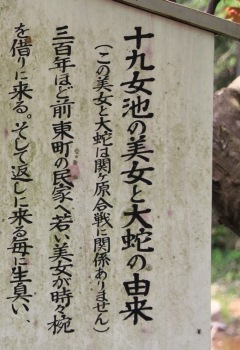 十九女池の美女と大蛇の由来
(この美女と大蛇は関ヶ原合戦に関係ありません)
三百年ほど前東町の民家へ若い美女が時々椀
を借りに来る。そして返しに来る毎に生臭い、